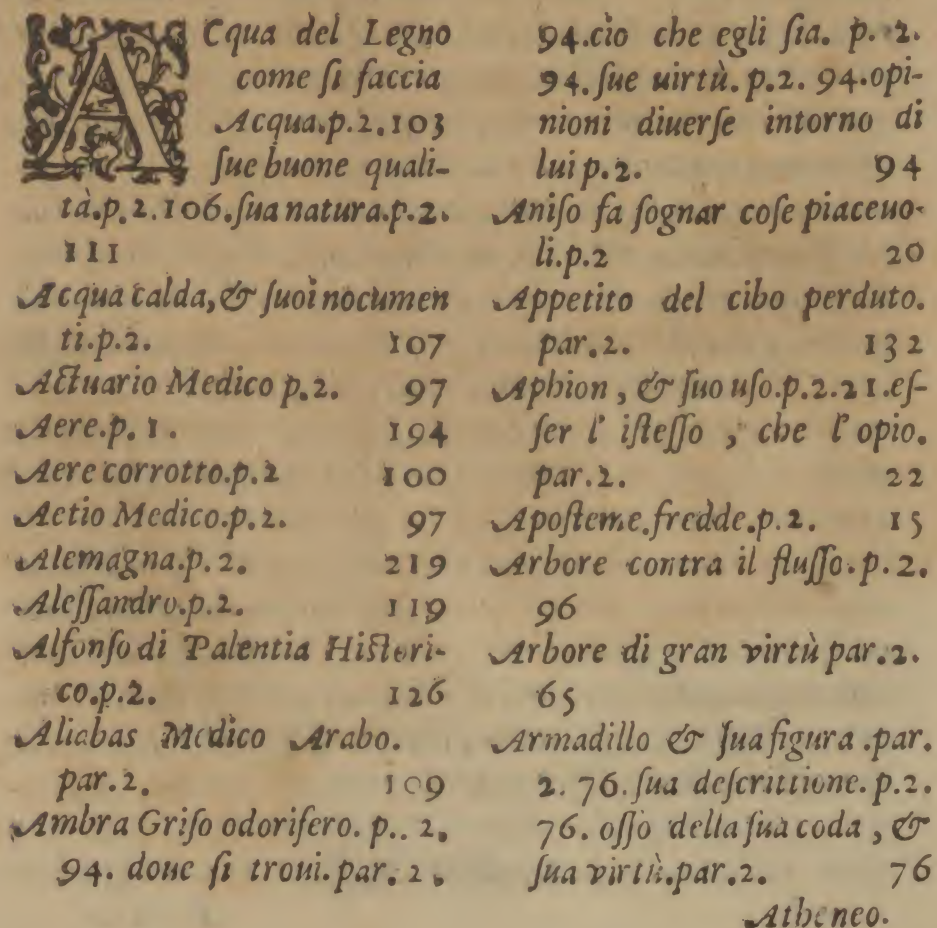 ACqua del Legno
come ſi faccia
Acqua.p.2.103
ſue buone quali-
tà.p.2.106.ſua natura.p.2.
111
Acqua calda,& ſuoi nocumen
ti.p.2. 107
Actuario Medico p.2. 97
Aere.p.1. 194
Aere corrotto.p.2 100
Aetio Medico.p.2. 97
Alemagna.p.2. 219
Aleſſandro.p.2. 119
Alfonſo di Palentia Hiſtori-
co.p.2. 126
Aliabas Medico Arabo.
par.2. 109
Ambra Griſo odorifero. p.. 2.
94. doue ſi troui.par. 2.
94.cio che egli ſia. p. 2.
94.ſue uirtù.p.2. 94.opi-
nioni diuerſe intorno di
lui p.2. 94
Aniſo fa ſognar coſe piaceuo-
li.p.2 20
Appetito del cibo perduto.
par.2. 132
Aphion, & ſuo uſo.p.2.21.eſ-
ſer l' iſteſſo, che l'opio.
par.2. 22
Apoſteme.fredde.p.2. 15
Arbore contra il fluſſo.p.2.
96
Arbore di gran virtù par.2.
65
Armadillo & ſua figura .par.
2. 76. ſua deſcrittione. p.2.
76. oſſo della ſua coda, &
ſua virtù.par.2. 76
Atheneo.